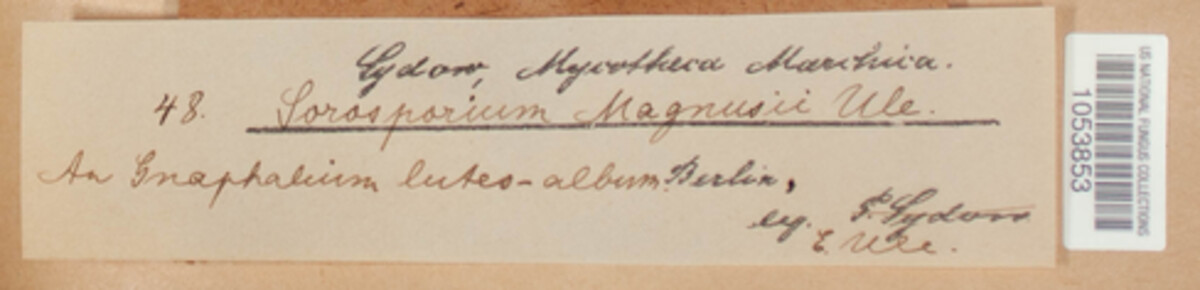 Sydow, Mycotheca Marchica.
48. Sorosporium Magnusii Ule.
An Gnaphalium luteo-album. Berlin,
leg. P. Sydow
E. Ule.
US NATIONAL FUNGUS COLLECTIONS
1053853